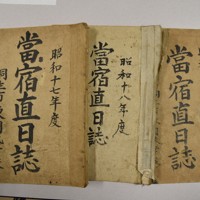 昭和十七年度
當宿直日誌
昭和十八年度
當宿直日誌
當宿直日誌